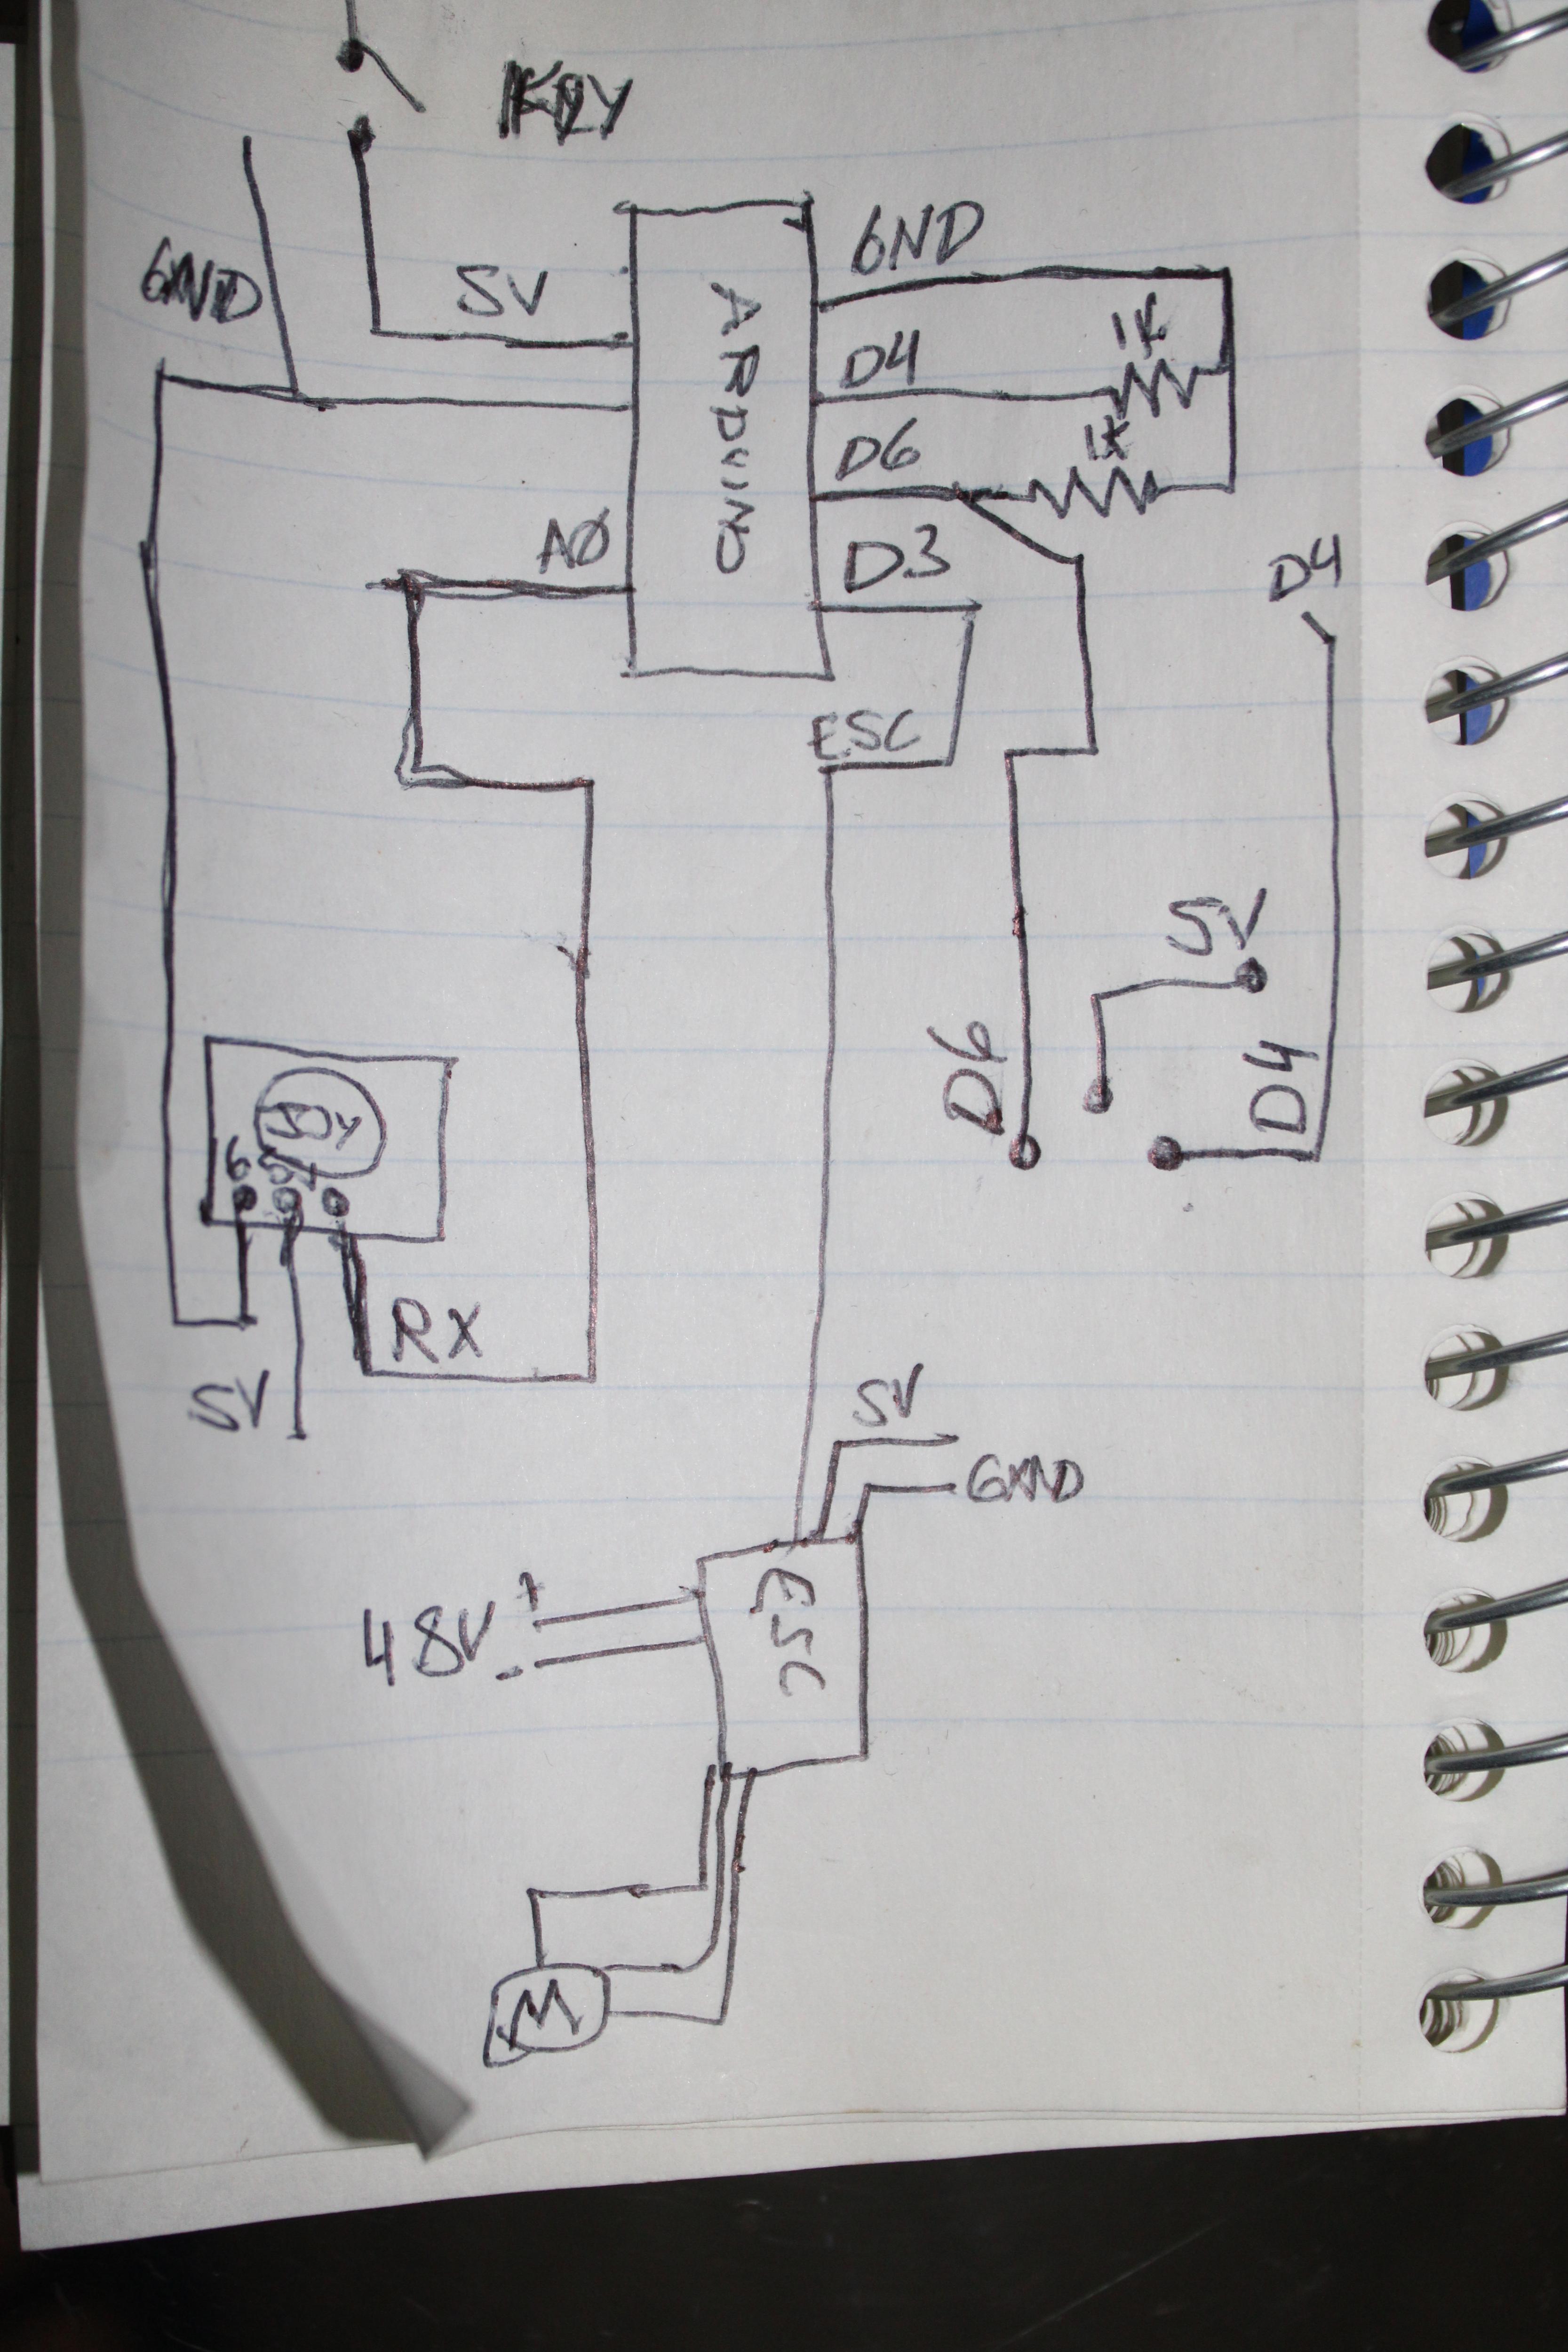 KEY
GND
GND
5V
ARDUINO
1K
D4
1K
D6
AØ
D3
D4
ESC
5V
D6
D4
G
5V
RX
5V
5V
GND
ESC
48V + -
M